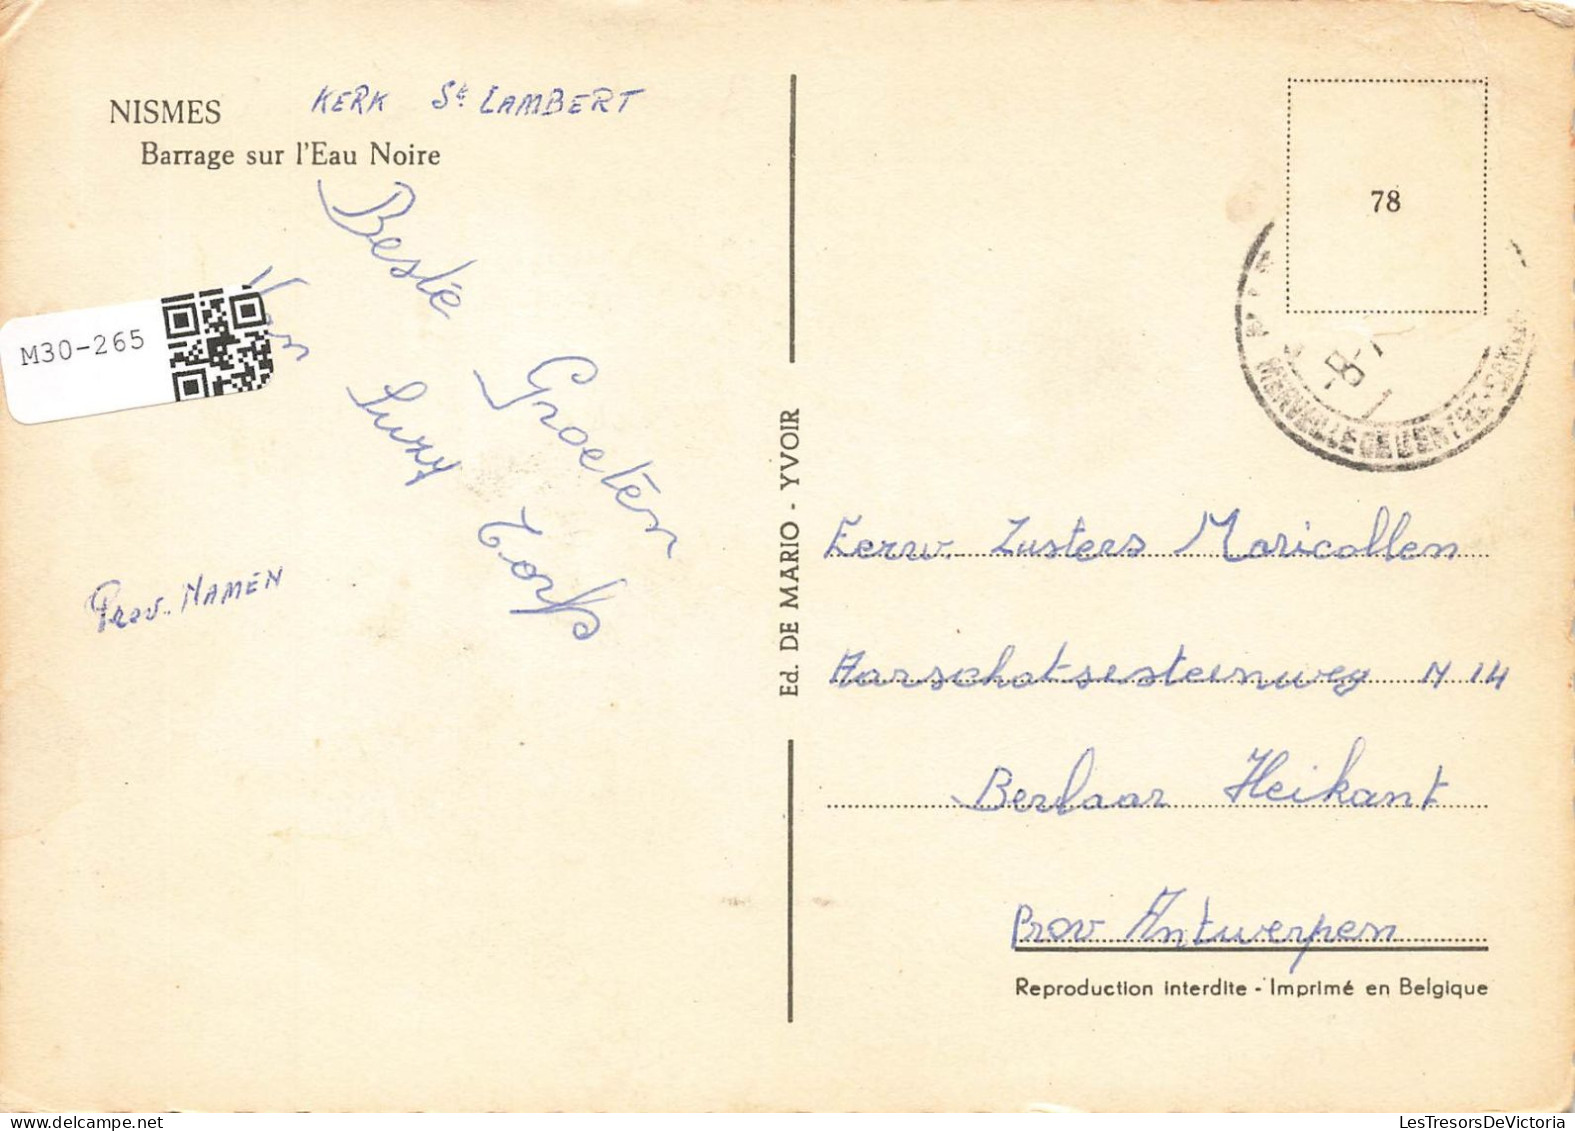 NISMES KERK St LAMBERT
Barrage sur l'Eau Noire
Beste
Groeten
Van
Suzy
Torfs
Prov. NAMEN
M30-265
Ed. DE MARIO - YVOIR
78
Eerw. Zusters Maricollen
Aarschotsesteenweg N 14
Berlaar Heikant
Prov Antwerpen
Reproduction interdite - Imprimé en Belgique
LesTresorsDeVictoria